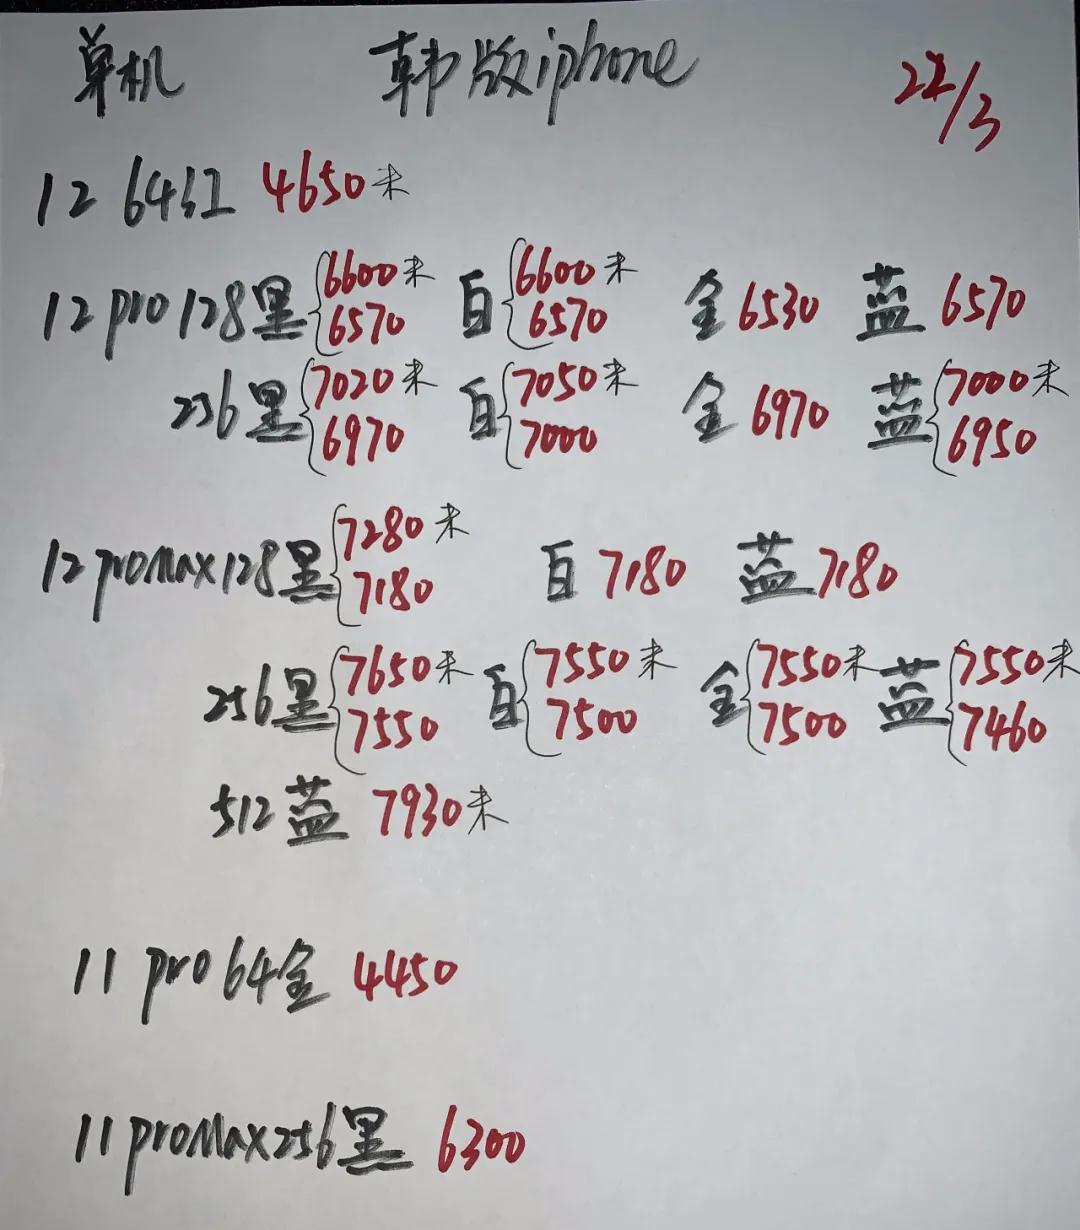 单机 韩版iphone 22/3
12 64红 4650未
12 pro 128黑 6600未 6570 白 6600未 6570 金 6530 蓝 6570
256黑 7020未 6970 白 7050未 7000 金 6970 蓝 7000未 6950
12 proMax 128黑 7280未 7180 白 7180 蓝 7180
256黑 7650未 7550 白 7550未 7500 金 7550未 7500 蓝 7550未 7460
512蓝 7930未
11 pro 64金 4450
11 proMax 256黑 6300